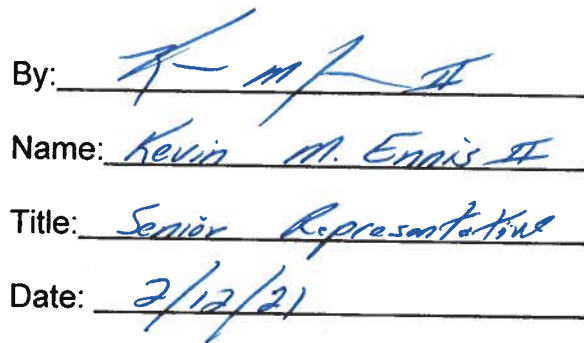 By: K M E II
Name: Kevin M. Ennis II
Title: Senior Representative
Date: 2/12/21